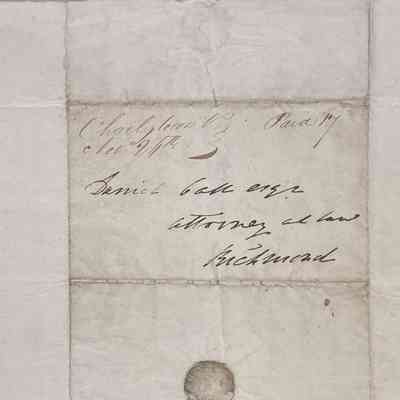 Charlestown Va. Paid 17
Nov. 24th
Daniel Call esqr
attorney at law
Richmond